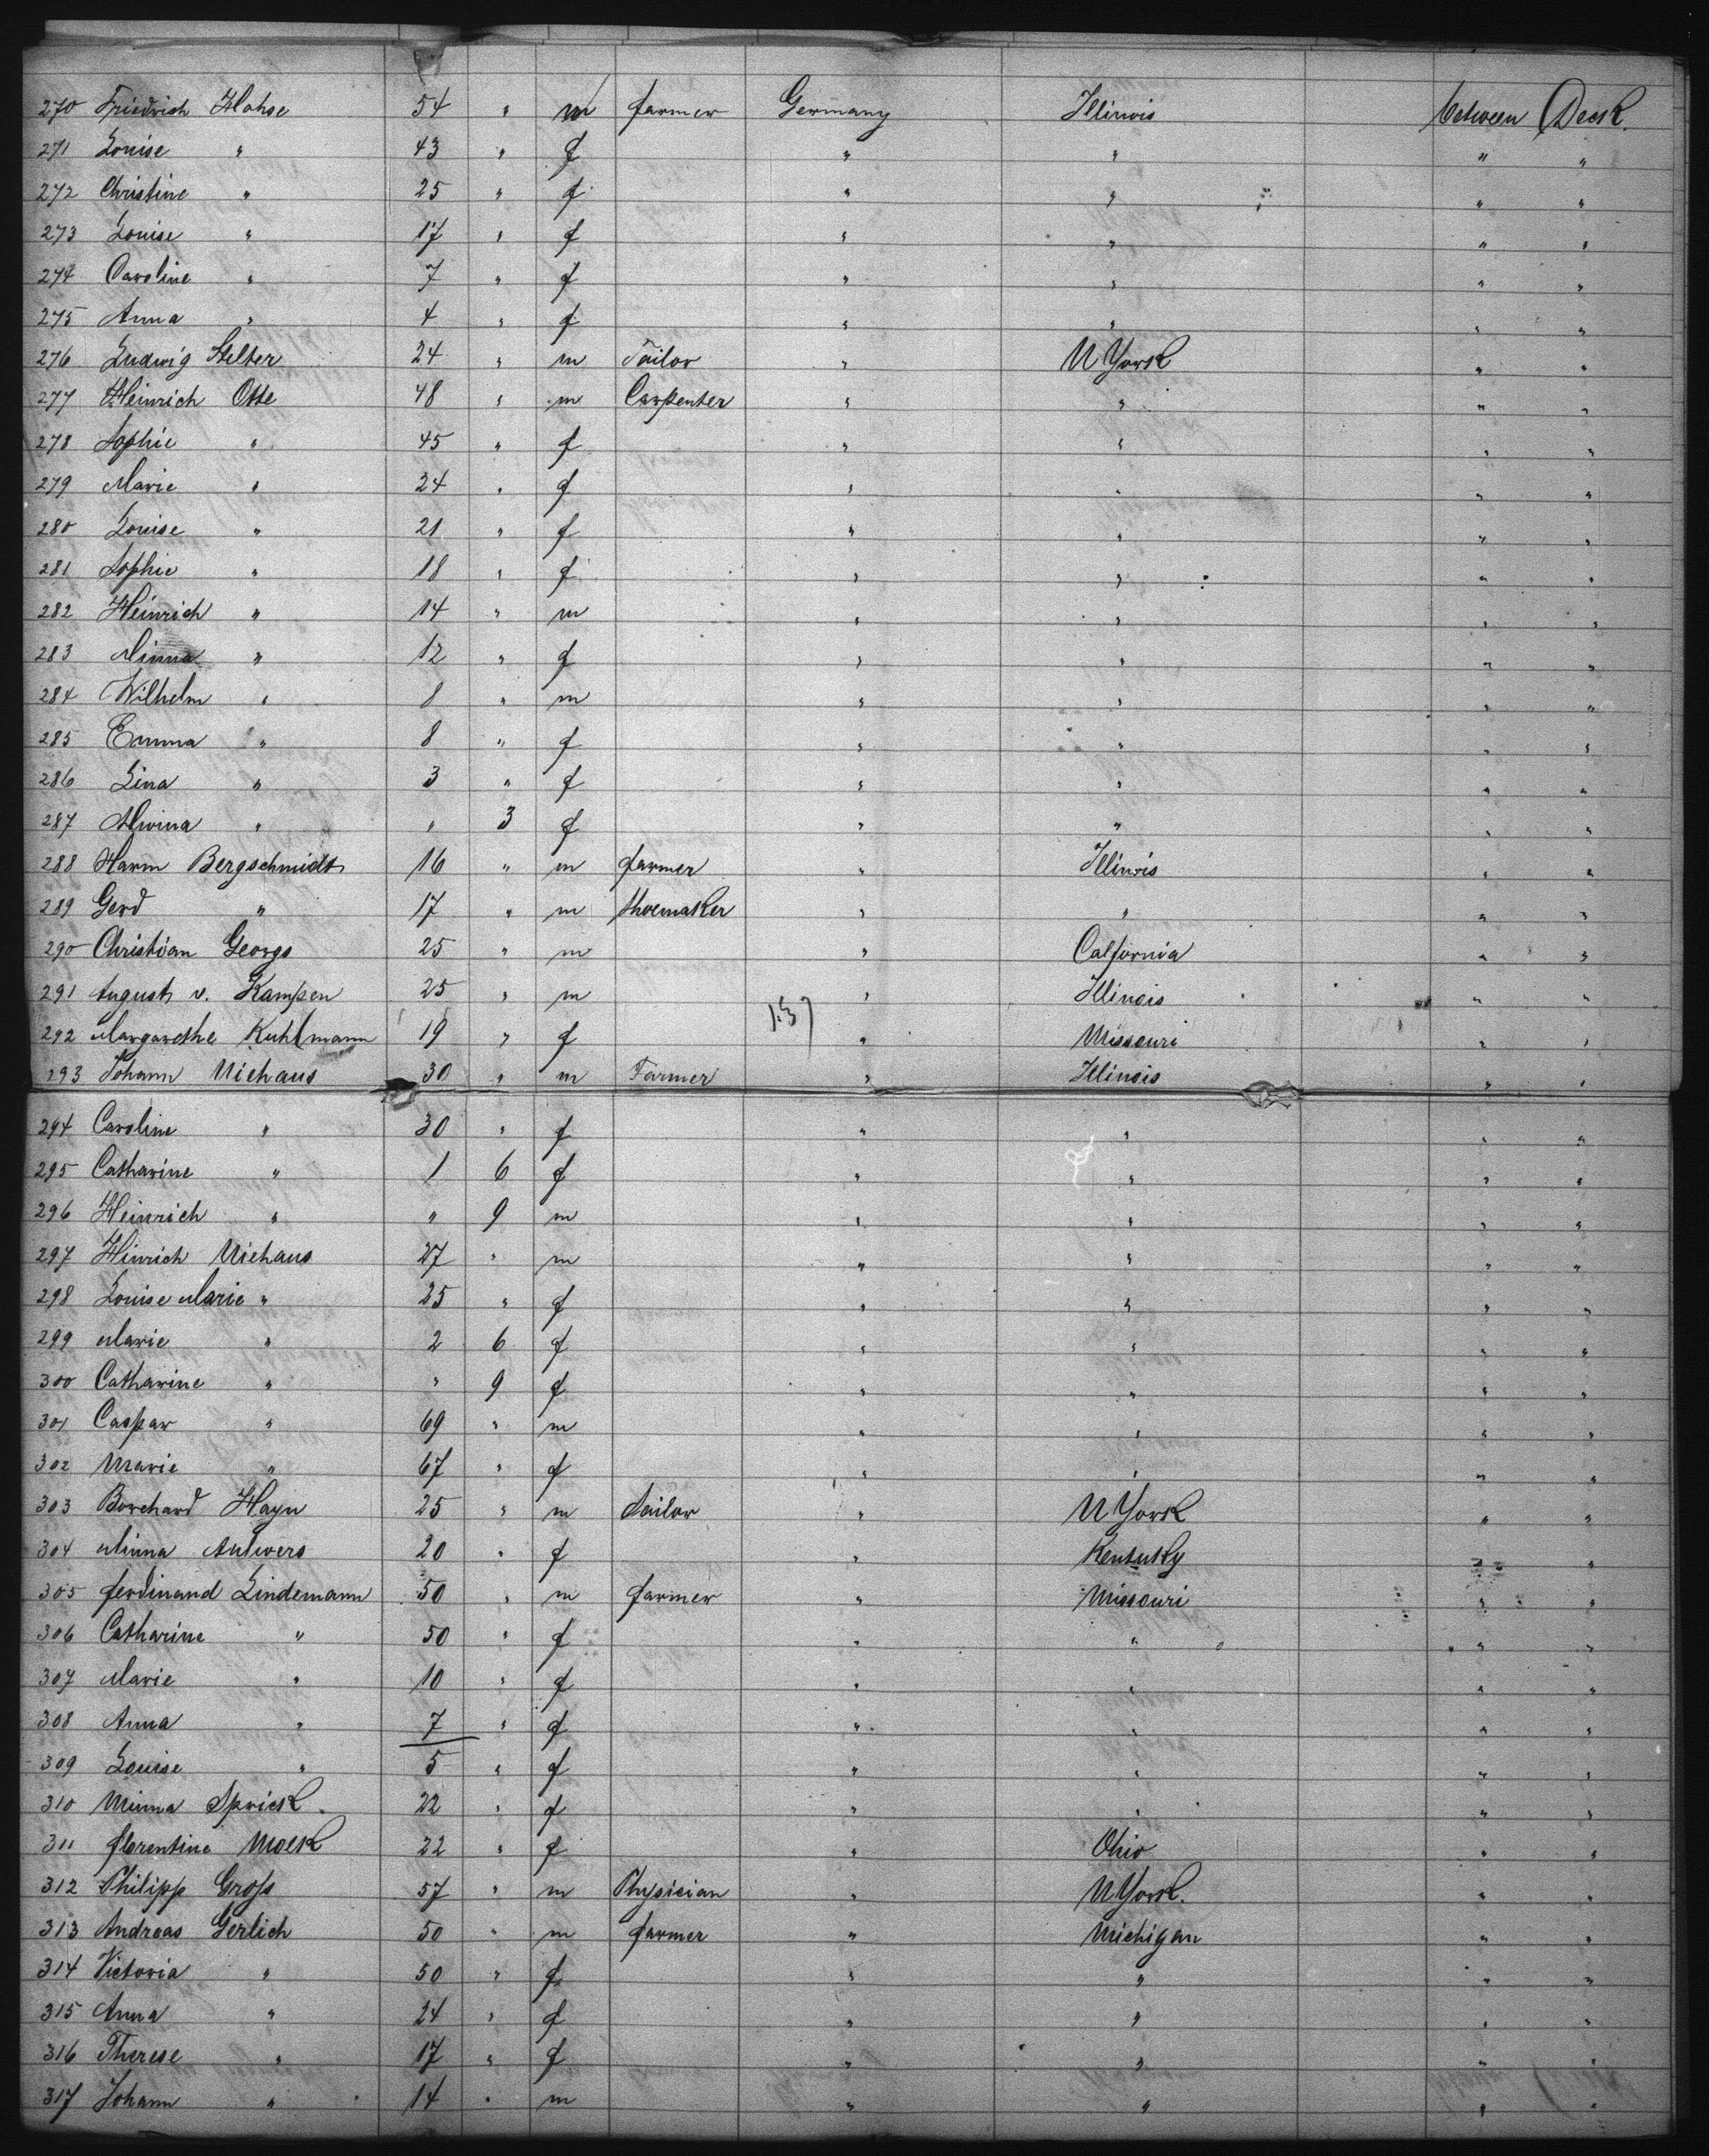 270 Friedrich Hohse 54 " m farmer Germany Illinois between Deck.
271 Louise " 43 " f " " " "
272 Christine " 25 " f " " " "
273 Louise " 17 " f " " " "
274 Caroline " 7 " f " " " "
275 Anna " 4 " f " " " "
276 Ludwig Stelter 24 " m Tailor " N York " "
277 Heinrich Otte 48 " m Carpenter " " " "
278 Sophie " 45 " f " " " "
279 Marie " 24 " f " " " "
280 Louise " 21 " f " " " "
281 Sophie " 18 " f " " " "
282 Heinrich " 14 " m " " " "
283 Minna " 12 " f " " " "
284 Wilhelm " 8 " m " " " "
285 Emma " 8 " f " " " "
286 Lina " 3 " f " " " "
287 Alwina " " 3 f " " " "
288 Harm Bergschmidt 16 " m farmer " Illinois " "
289 Gerd " 17 " m Shoemaker " " " "
290 Christian Georgs 25 " m " Calfornia " "
291 August v. Kampen 25 " m " Illinois " "
137
292 Margarethe Kuhlmann 19 " f " Missouri " "
293 Johann Niehaus 30 " m Farmer " Illinois " "
294 Caroline " 30 " f " " " "
295 Catharine " 1 6 f " " " "
296 Heinrich " " 9 m " " " "
297 Hinrich Niehaus 27 " m " " " "
298 Louise Marie " 25 " f " " " "
299 Marie " 2 6 f " " " "
300 Catharine " " 9 f " " " "
301 Caspar " 69 " m " " " "
302 Marie " 67 " f " " " "
303 Borchard Hayn 25 " m Tailor " N York " "
304 Minna 20 " f " Kentuky " "
305 ferdinand Lindemann 50 " m farmer " Missouri " "
306 Catharine " 50 " f " " " "
307 Marie " 10 " f " " " "
308 Anna " 7 " f " " " "
309 Louise " 5 " f " " " "
310 Minna Sprick 22 " f " " " "
311 florentine Molk 22 " f " Ohio " "
312 Philipp Gross 57 " m Physician " N York. " "
313 Andreas Gerlich 50 " m farmer " Michigan " "
314 Victoria " 50 " f " " " "
315 Anna " 24 " f " " " "
316 Therese " 17 " f " " " "
317 Johann " 14 " m " " " "